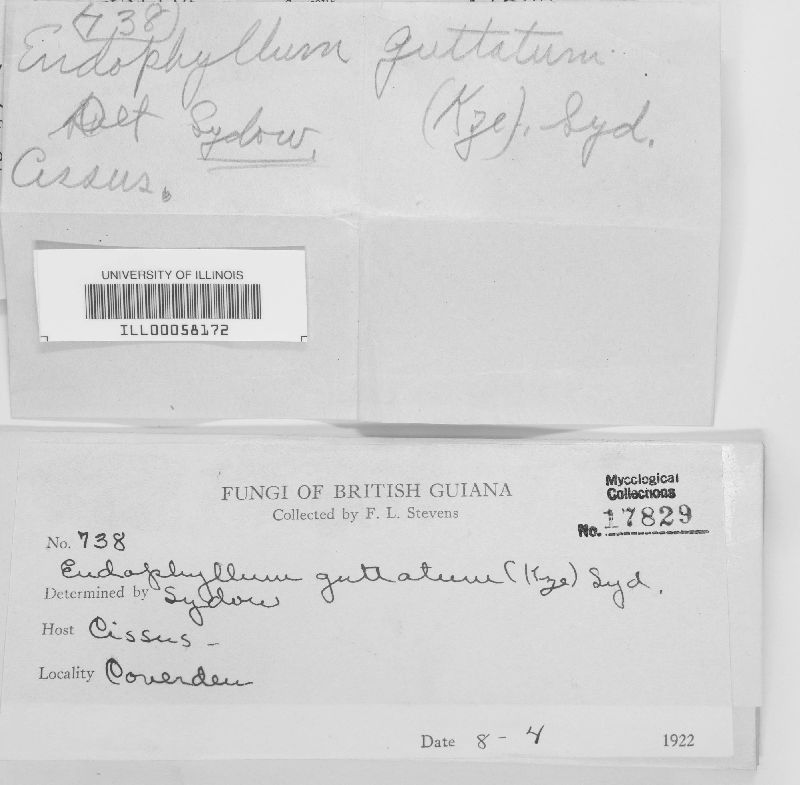 (738)
Endophyllum guttatum
Det Sydow. (Kze). Syd.
Cissus.
UNIVERSITY OF ILLINOIS
ILL00058172
FUNGI OF BRITISH GUIANA
Collected by F. L. Stevens
Mycological
Collections
No. 17829
No. 738
Endophyllum guttatum (Kze) Syd.
Determined by Sydow
Host Cissus -
Locality Coverden
Date 8 - 4 1922